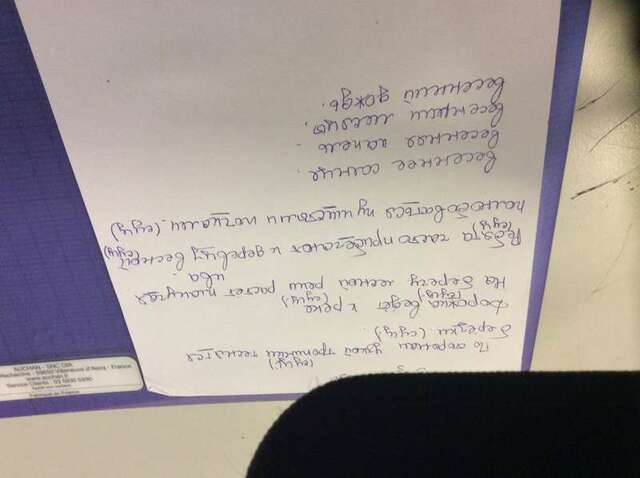 (сущ)
По сторонам узкой тропинки теснятся
берёзки (сущ).
Дорожка ведёт к реке
(сущ) (сущ)
На берегу лесной реки растёт плакучая
ива.
Ребята часто прибегают к деревцу весной
(сущ) (сущ)
полюбоваться пушистыми почками. (сущ)
весеннее солнце.
весенняя капель.
весенние месяцы.
весенний дождь.